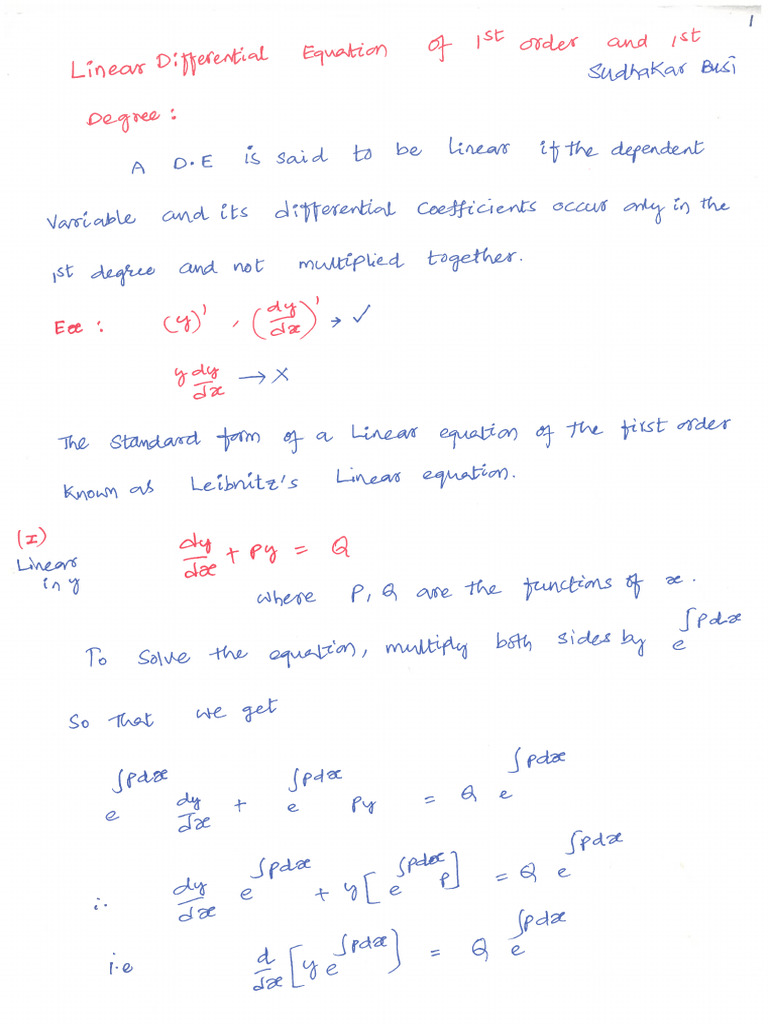 1
Linear Differential Equation of 1st order and 1st
Sudhakar Busi
Degree :
A D.E is said to be linear if the dependent
variable and its differential coefficients occur only in the
1st degree and not multiplied together.
Ex : (y)¹ , (dy/dx)¹ → ✓
y dy/dx → ×
The standard form of a Linear equation of the first order
known as Leibnitz's Linear equation.
(I)
Linear in y
dy/dx + Py = Q
where P, Q are the functions of x.
To solve the equation, multiply both sides by e^∫Pdx
So that we get
e^∫Pdx dy/dx + e^∫Pdx Py = Q e^∫Pdx
∴ dy/dx e^∫Pdx + y[e^∫Pdx P] = Q e^∫Pdx
i.e d/dx [y e^∫Pdx] = Q e^∫Pdx